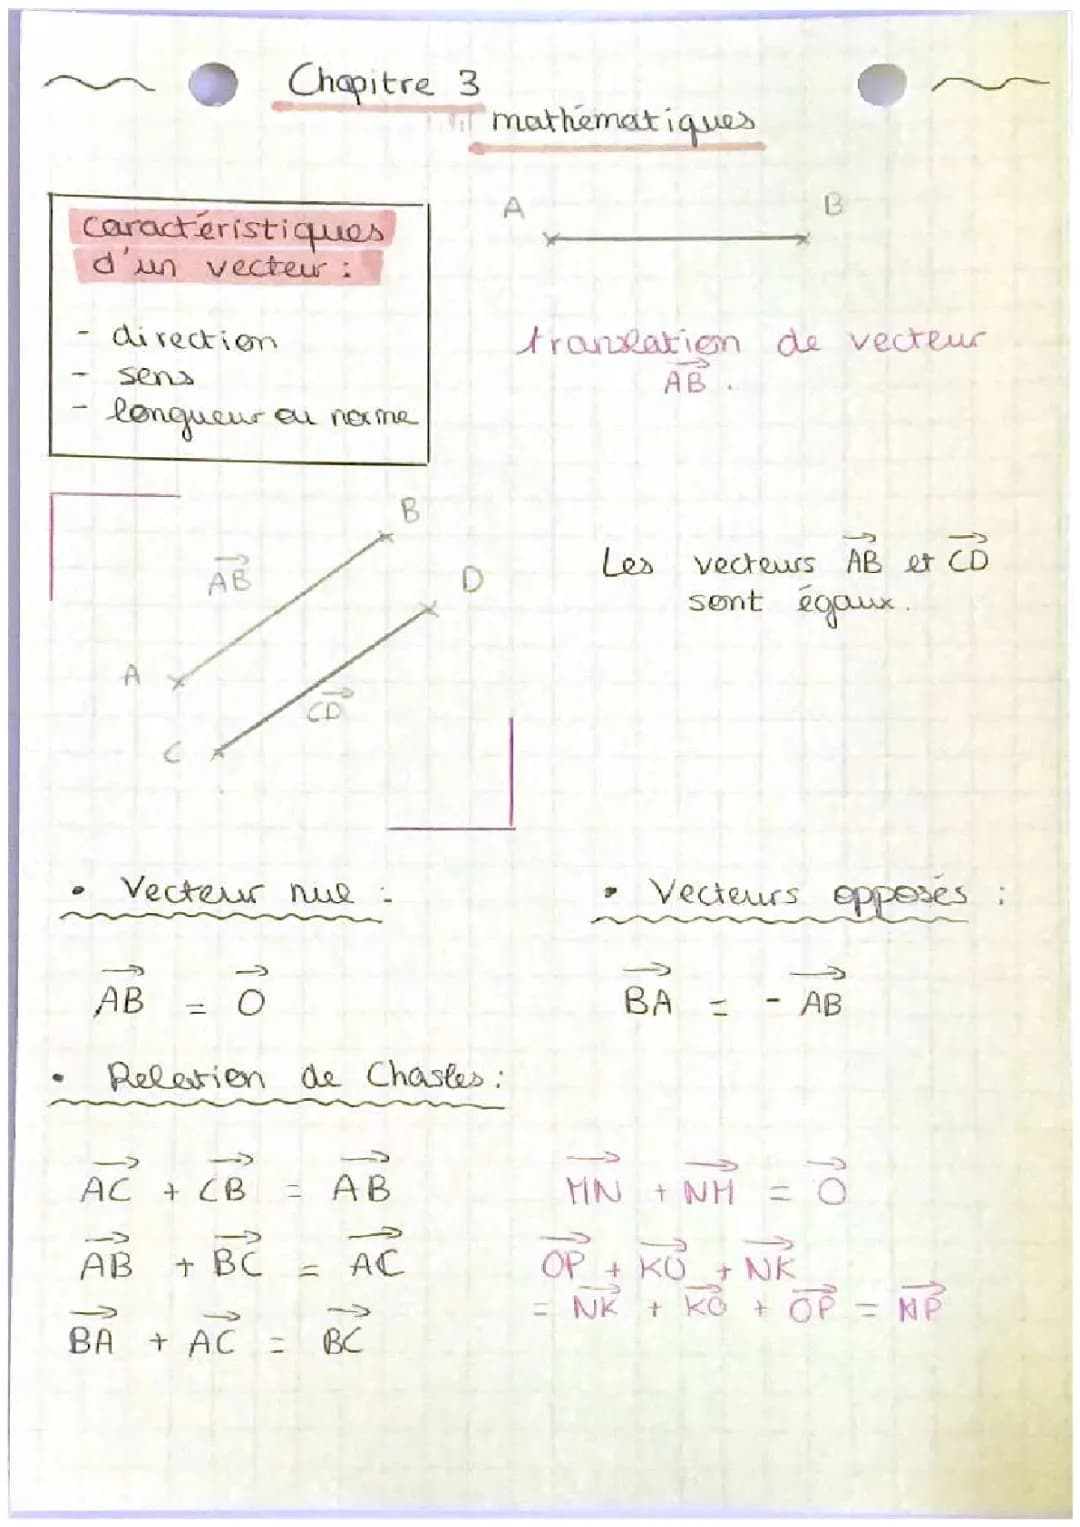 Chapitre 3
mathématiques
caractéristiques
d'un vecteur :
- direction
- sens
- longueur ou norme
A B
translation de vecteur
AB .
B
AB
D
A
CD
C
Les vecteurs AB et CD
sont égaux.
• Vecteur nul :
AB = 0
• Vecteurs opposés :
BA = - AB
• Relation de Chasles :
AC + CB = AB
AB + BC = AC
BA + AC = BC
MN + NM = 0
OP + KO + NK
= NK + KO + OP = NP